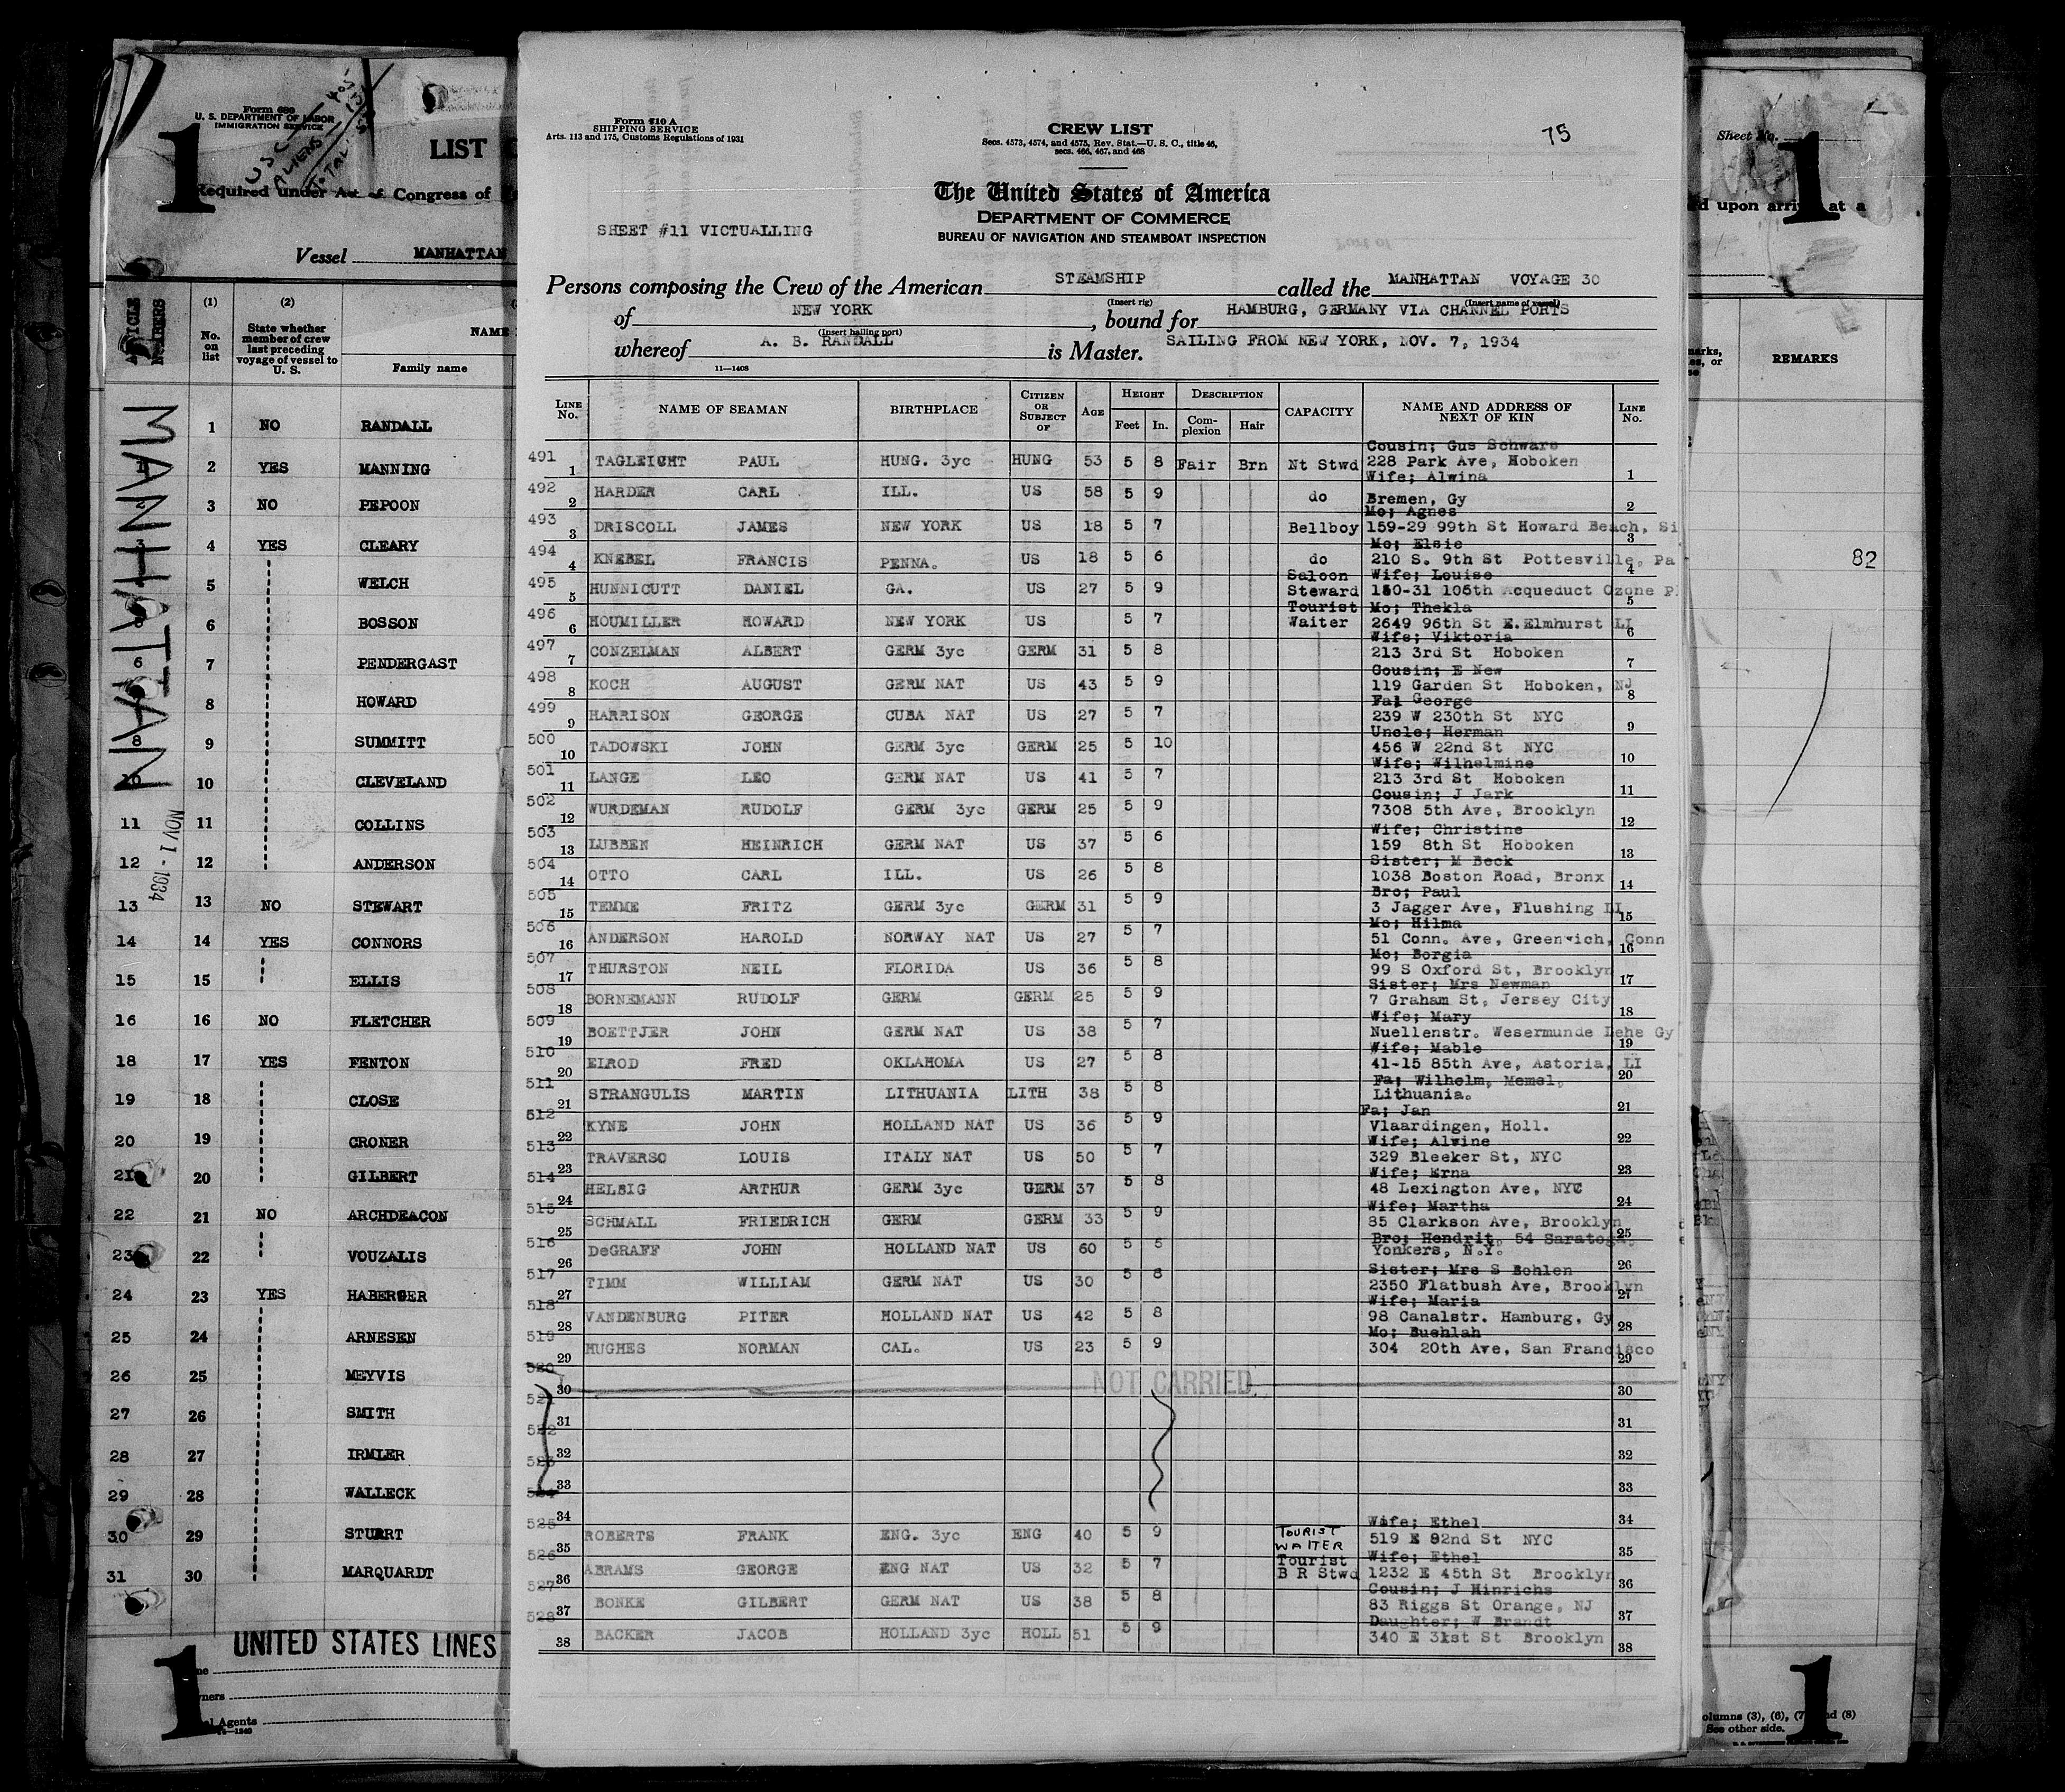 Form 689
U. S. DEPARTMENT OF LABOR
IMMIGRATION SERVICE
1
U S C 405
ALIENS
TOTAL
LIST
Required under Act of Congress of
Vessel MANHATTAN
ARTICLE NUMBERS
(1) (2)
No. on list
State whether member of crew last preceding voyage of vessel to U. S.
NAME
Family name
MANHATTAN
NOV 1 - 1934
1 NO RANDALL
1 2 YES MANNING
2 3 NO PEPOON
3 4 YES CLEARY
5 WELCH
6 BOSSON
6 7 PENDERGAST
8 HOWARD
8 9 SUMMITT
10 10 CLEVELAND
11 11 COLLINS
12 12 ANDERSON
13 13 NO STEWART
14 14 YES CONNORS
15 15 ELLIS
16 16 NO FLETCHER
18 17 YES FENTON
19 18 CLOSE
20 19 CRONER
21 20 GILBERT
22 21 NO ARCHDEACON
23 22 VOUZALIS
24 23 YES HABERGER
25 24 ARNESEN
26 25 MEYVIS
27 26 SMITH
28 27 IRMLER
29 28 WALLECK
30 29 STUART
31 30 MARQUARDT
UNITED STATES LINES
1
Agents
Form 710 A
SHIPPING SERVICE
Arts. 113 and 175, Customs Regulations of 1931
CREW LIST
Secs. 4573, 4574, and 4575, Rev. Stat.—U. S. C., title 46,
secs. 466, 467, and 468
75
The United States of America
DEPARTMENT OF COMMERCE
BUREAU OF NAVIGATION AND STEAMBOAT INSPECTION
SHEET #11 VICTUALLING
Persons composing the Crew of the American STEAMSHIP called the MANHATTAN VOYAGE 30
(Insert rig) (Insert name of vessel)
of NEW YORK, bound for HAMBURG, GERMANY VIA CHANNEL PORTS
(Insert hailing port)
whereof A. B. RANDALL is Master. SAILING FROM NEW YORK, NOV. 7, 1934
11—1408
LINE No. NAME OF SEAMAN BIRTHPLACE CITIZEN OR SUBJECT OF AGE HEIGHT DESCRIPTION CAPACITY NAME AND ADDRESS OF NEXT OF KIN LINE No.
Feet In. Complexion Hair
Cousin; Gus Schwars
491 1 TAGLEICHT PAUL HUNG. 3yc HUNG 53 5 8 Fair Brn Nt Stwd 228 Park Ave, Hoboken 1
Wife; Alwina
492 2 HARDER CARL ILL. US 58 5 9 do Bremen, Gy 2
Mo; Agnes
493 3 DRISCOLL JAMES NEW YORK US 18 5 7 Bellboy 159-29 99th St Howard Beach, Si 3
Mo; Elsie
494 4 KNEBEL FRANCIS PENNA. US 18 5 6 do 210 S. 9th St Pottesville, Pa 4
Saloon Wife; Louise
495 5 HUNNICUTT DANIEL GA. US 27 5 9 Steward 130-31 105th Acqueduct Ozone P 5
Tourist Mo; Thekla
496 6 HOUMILLER HOWARD NEW YORK US 5 7 Waiter 2649 96th St E.Elmhurst LI 6
Wife; Viktoria
497 7 CONZELMAN ALBERT GERM 3yc GERM 31 5 8 213 3rd St Hoboken 7
Cousin; E New
498 8 KOCH AUGUST GERM NAT US 43 5 9 119 Garden St Hoboken, NJ 8
Fa; George
499 9 HARRISON GEORGE CUBA NAT US 27 5 7 239 W 230th St NYC 9
Uncle; Herman
500 10 TADOWSKI JOHN GERM 3yc GERM 25 5 10 456 W 22nd St NYC 10
Wife; Wilhelmine
501 11 LANGE LEO GERM NAT US 41 5 7 213 3rd St Hoboken 11
Cousin; J Jark
502 12 WURDEMAN RUDOLF GERM 3yc GERM 25 5 9 7308 5th Ave, Brooklyn 12
Wife; Christine
503 13 LUBBEN HEINRICH GERM NAT US 37 5 6 159 8th St Hoboken 13
Sister; M Beck
504 14 OTTO CARL ILL. US 26 5 8 1038 Boston Road, Bronx 14
Bro; Paul
505 15 TEMME FRITZ GERM 3yc GERM 31 5 9 3 Jagger Ave, Flushing LI 15
Mo; Hilma
506 16 ANDERSON HAROLD NORWAY NAT US 27 5 7 51 Conn. Ave, Greenwich, Conn 16
Mo; Borgia
507 17 THURSTON NEIL FLORIDA US 36 5 8 99 S Oxford St, Brooklyn 17
Sister; Mrs Newman
508 18 BORNEMANN RUDOLF GERM GERM 25 5 9 7 Graham St, Jersey City 18
Wife; Mary
509 19 BOETTJER JOHN GERM NAT US 38 5 7 Nuellenstr. Wesermunde Lehe Gy 19
Wife; Mable
510 20 ELROD FRED OKLAHOMA US 27 5 8 41-15 85th Ave, Astoria, LI 20
Fa; Wilhelm, Memel,
511 21 STRANGULIS MARTIN LITHUANIA LITH 38 5 8 Lithuania. 21
Fa; Jan
512 22 KYNE JOHN HOLLAND NAT US 36 5 9 Vlaardingen, Holl. 22
Wife; Alwine
513 23 TRAVERSO LOUIS ITALY NAT US 50 5 7 329 Bleeker St, NYC 23
Wife; Erna
514 24 HELBIG ARTHUR GERM 3yc GERM 37 5 8 48 Lexington Ave, NYC 24
Wife; Martha
515 25 SCHMALL FRIEDRICH GERM GERM 33 5 9 85 Clarkson Ave, Brooklyn 25
Bro; Hendrit, 54 Saratoga,
516 26 DeGRAFF JOHN HOLLAND NAT US 60 5 5 Yonkers, N.Y. 26
Sister; Mrs S Bohlen
517 27 TIMM WILLIAM GERM NAT US 30 5 8 2350 Flatbush Ave, Brooklyn 27
Wife; Maria
518 28 VANDENBURG PITER HOLLAND NAT US 42 5 8 98 Canalstr. Hamburg, Gy 28
Mo; Buehlah
519 29 HUGHES NORMAN CAL. US 23 5 9 304 20th Ave, San Francisco 29
520 30 NOT CARRIED 30
521 31 31
522 32 32
523 33 33
524 34 34
Wife; Ethel
525 35 ROBERTS FRANK ENG. 3yc ENG 40 5 9 TOURIST WAITER 519 E 82nd St NYC 35
Tourist Wife; Ethel
526 36 ABRAMS GEORGE ENG NAT US 32 5 7 B R Stwd 1232 E 45th St Brooklyn 36
Cousin; J Hinrichs
527 37 BONKE GILBERT GERM NAT US 38 5 8 83 Riggs St Orange, NJ 37
Daughter; W Brandt
528 38 BACKER JACOB HOLLAND 3yc HOLL 51 5 9 340 E 31st St Brooklyn 38
Sheet No.
1
d upon arrival at a
REMARKS
82
columns (3), (6), (7) and (8)
See other side.
1